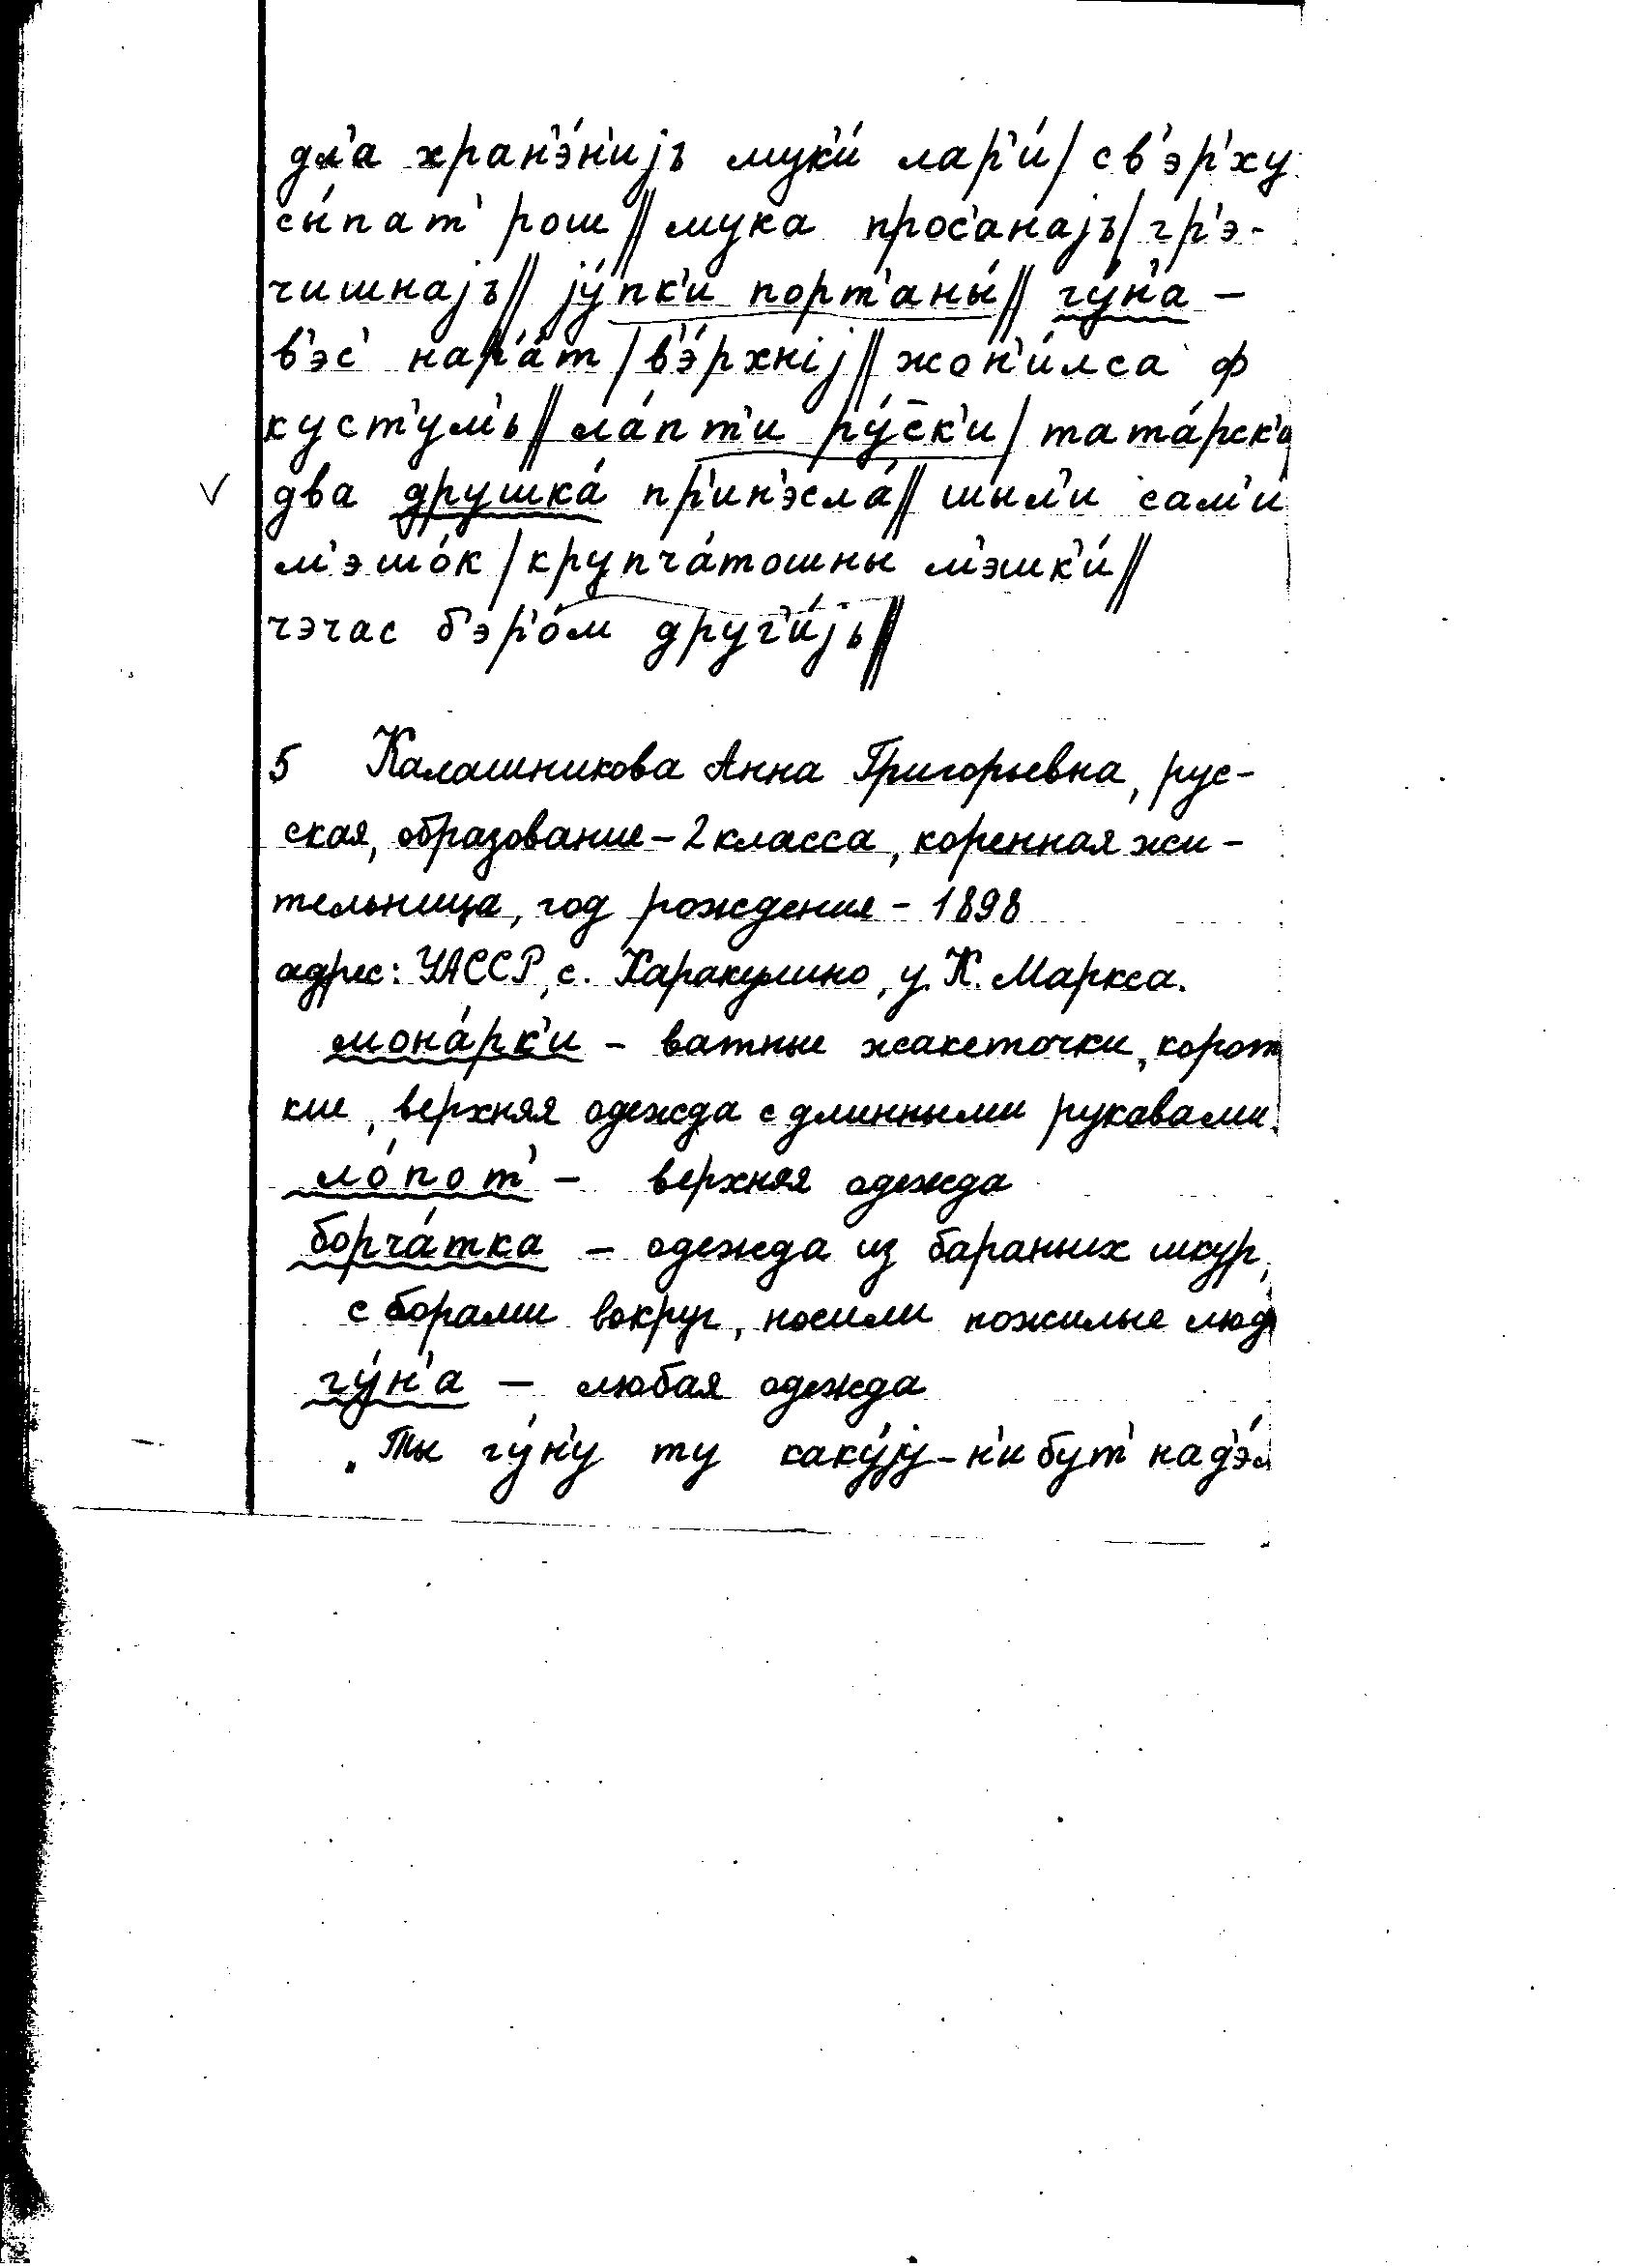 дл'а хран'э́н'иjъ мук'и́ лар'и́ / св'эр'ху
сы́пат' рош // мука прос'анаjъ / гр'э-
чишнаjъ // jу́пк'и порт'аны́ // гу́н'а –
в'эс' нар'а́т / в'э́рхніj // жон'и́лса ф
куст'ум'ь // ла́пт'и ру́с̄к'и / тата́рск'и
два друшка́ пр'ин'эсла́ // шыл'и сам'и́
м'эшо́к / крупча́тошны м'эшк'и́ //
чэчас б'эр'о́м друг'и́jь //
5 Калашникова Анна Григорьевна, рус-
ская, образование – 2 класса, коренная жи-
тельница, год рождения – 1898
адрес: УАССР, с. Каракулино, у. К. Маркса.
мона́рк'и – ватные жакеточки, корот
кие, верхняя одежда с длинными рукавами.
ло́пот' – верхняя одежда
борча́тка – одежда из бараньих шкур,
с борами вокруг, носили пожилые люд
гу́н'а – любая одежда
„Ты гу́н'у ту каку́jу-н'ибут' над'э́л